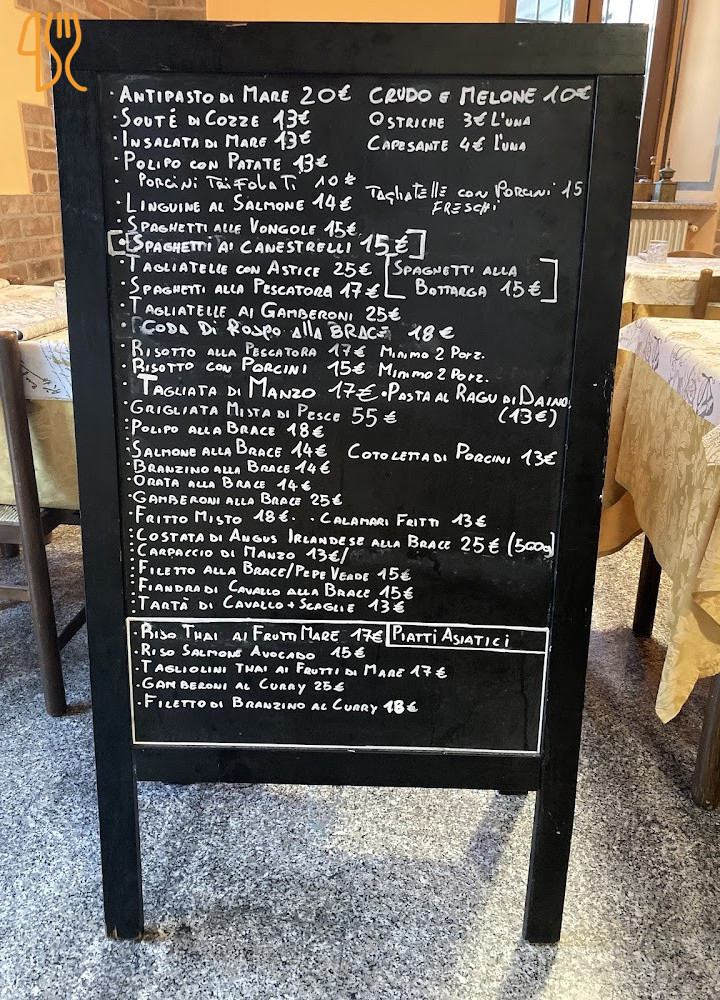 ANTIPASTO DI MARE 20€ CRUDO E MELONE 10€
SOUTÉ DI COZZE 13€ OSTRICHE 3€ L'UNA
INSALATA DI MARE 13€ CAPESANTE 4€ L'UNA
POLIPO CON PATATE 13€
PORCINI TRIFOLATI 10€ TAGLIATELLE CON PORCINI 15
FRESCHI
LINGUINE AL SALMONE 14€
SPAGHETTI ALLE VONGOLE 15€
[SPAGHETTI AI CANESTRELLI 15€]
TAGLIATELLE CON ASTICE 25€ [SPAGHETTI ALLA
SPAGHETTI ALLA PESCATORA 17€ BOTTARGA 15€]
TAGLIATELLE AI GAMBERONI 25€
CODA DI ROSPO ALLA BRACE 18€
RISOTTO ALLA PESCATORA 17€ MINIMO 2 PORZ.
RISOTTO CON PORCINI 15€ MINIMO 2 PORZ.
TAGLIATA DI MANZO 17€ • PASTA AL RAGU DI DAINO
GRIGLIATA MISTA DI PESCE 55€ (13€)
POLIPO ALLA BRACE 18€
SALMONE ALLA BRACE 14€ COTOLETTA DI PORCINI 13€
BRANZINO ALLA BRACE 14€
ORATA ALLA BRACE 14€
GAMBERONI ALLA BRACE 25€
FRITTO MISTO 18€ • CALAMARI FRITTI 13€
COSTATA DI ANGUS IRLANDESE ALLA BRACE 25€ (500g)
CARPACCIO DI MANZO 13€/
FILETTO ALLA BRACE/PEPE VERDE 15€
FIANDRA DI CAVALLO ALLA BRACE 15€
TARTÀ DI CAVALLO + SCAGLIE 13€
RISO THAI AI FRUTTI MARE 17€ PIATTI ASIATICI
RISO SALMONE AVOCADO 15€
TAGLIOLINI THAI AI FRUTTI DI MARE 17€
GAMBERONI AL CURRY 25€
FILETTO DI BRANZINO AL CURRY 18€